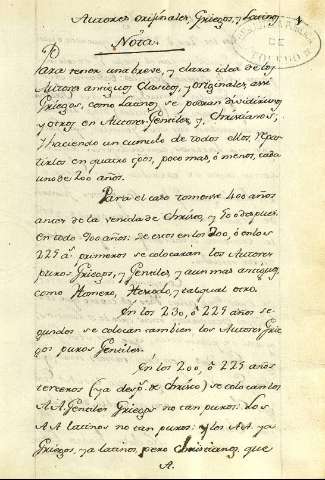 Autores originales, Griegos, y Latinos.
Nota.
Para tener una breve, y clara idea de los
Autores antiguos Clasicos, y originales, assi
Griegos, como Latinos, se podran dividir unos
y otros en Autores Gentiles, y Christianos,
y haciendo un cumulo de todos ellos, repar
tirlos en quatro epos, poco mas, ó menos, cada
uno de 200 años.
Para el caso tomense 400 años
antes de la venida de Christo, y 500 despues.
En todo 900 años: De estos en los 200, ó en los
225 a.s primeros se colocaran los Autores
puros Griegos, y Gentiles, y aun mas antiguos
como Homero, Hesiodo, y tal qual otro.
En los 230, ó 225 años se-
gundos se colocan tambien los Autores Grie
gos puros Gentiles.
En los 200, ó 225 años
terceros (ya desp.s de Christo) se colocan los
AA Gentiles Griegos no tan puros: Los
AA latinos no tan puros: y los AA. ya
Griegos, ya latinos, pero Christianos, que
A.
DE
TOLEDO